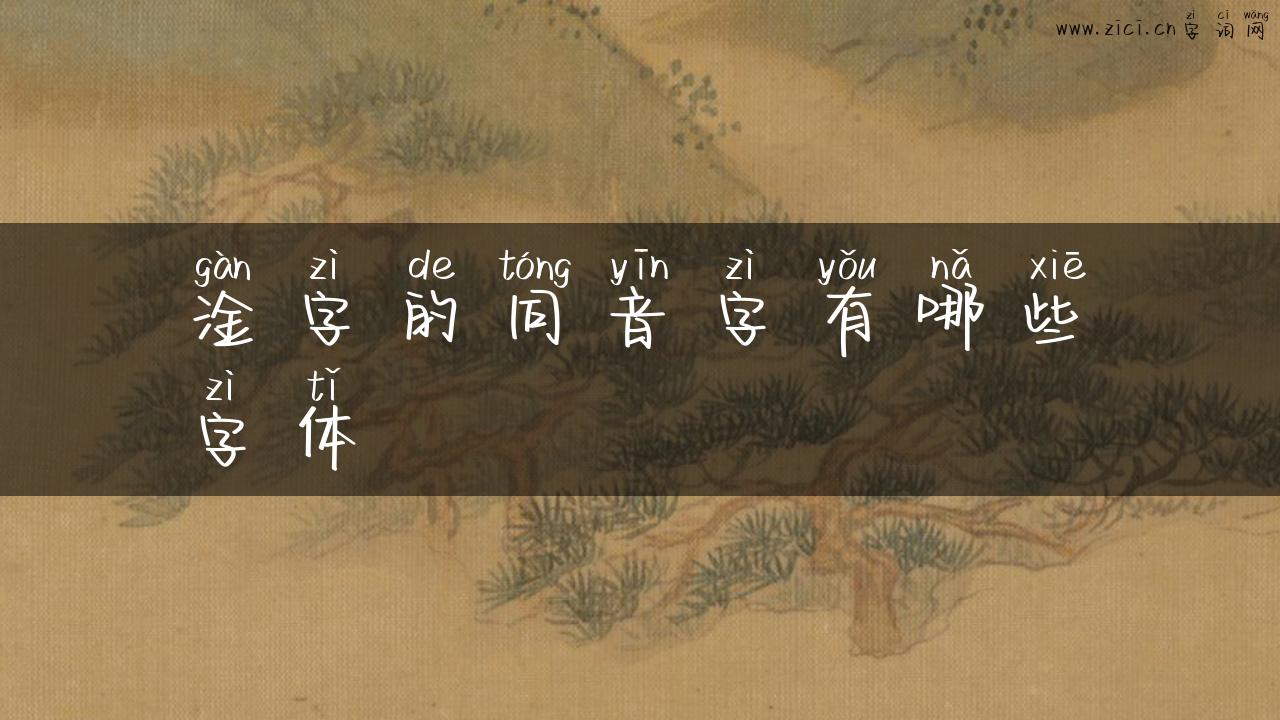 zì cí wǎng
www.zici.cn 字 词 网
gàn zì de tóng yīn zì yǒu nǎ xiē
淦 字 的 同 音 字 有 哪 些
zì tǐ
字 体